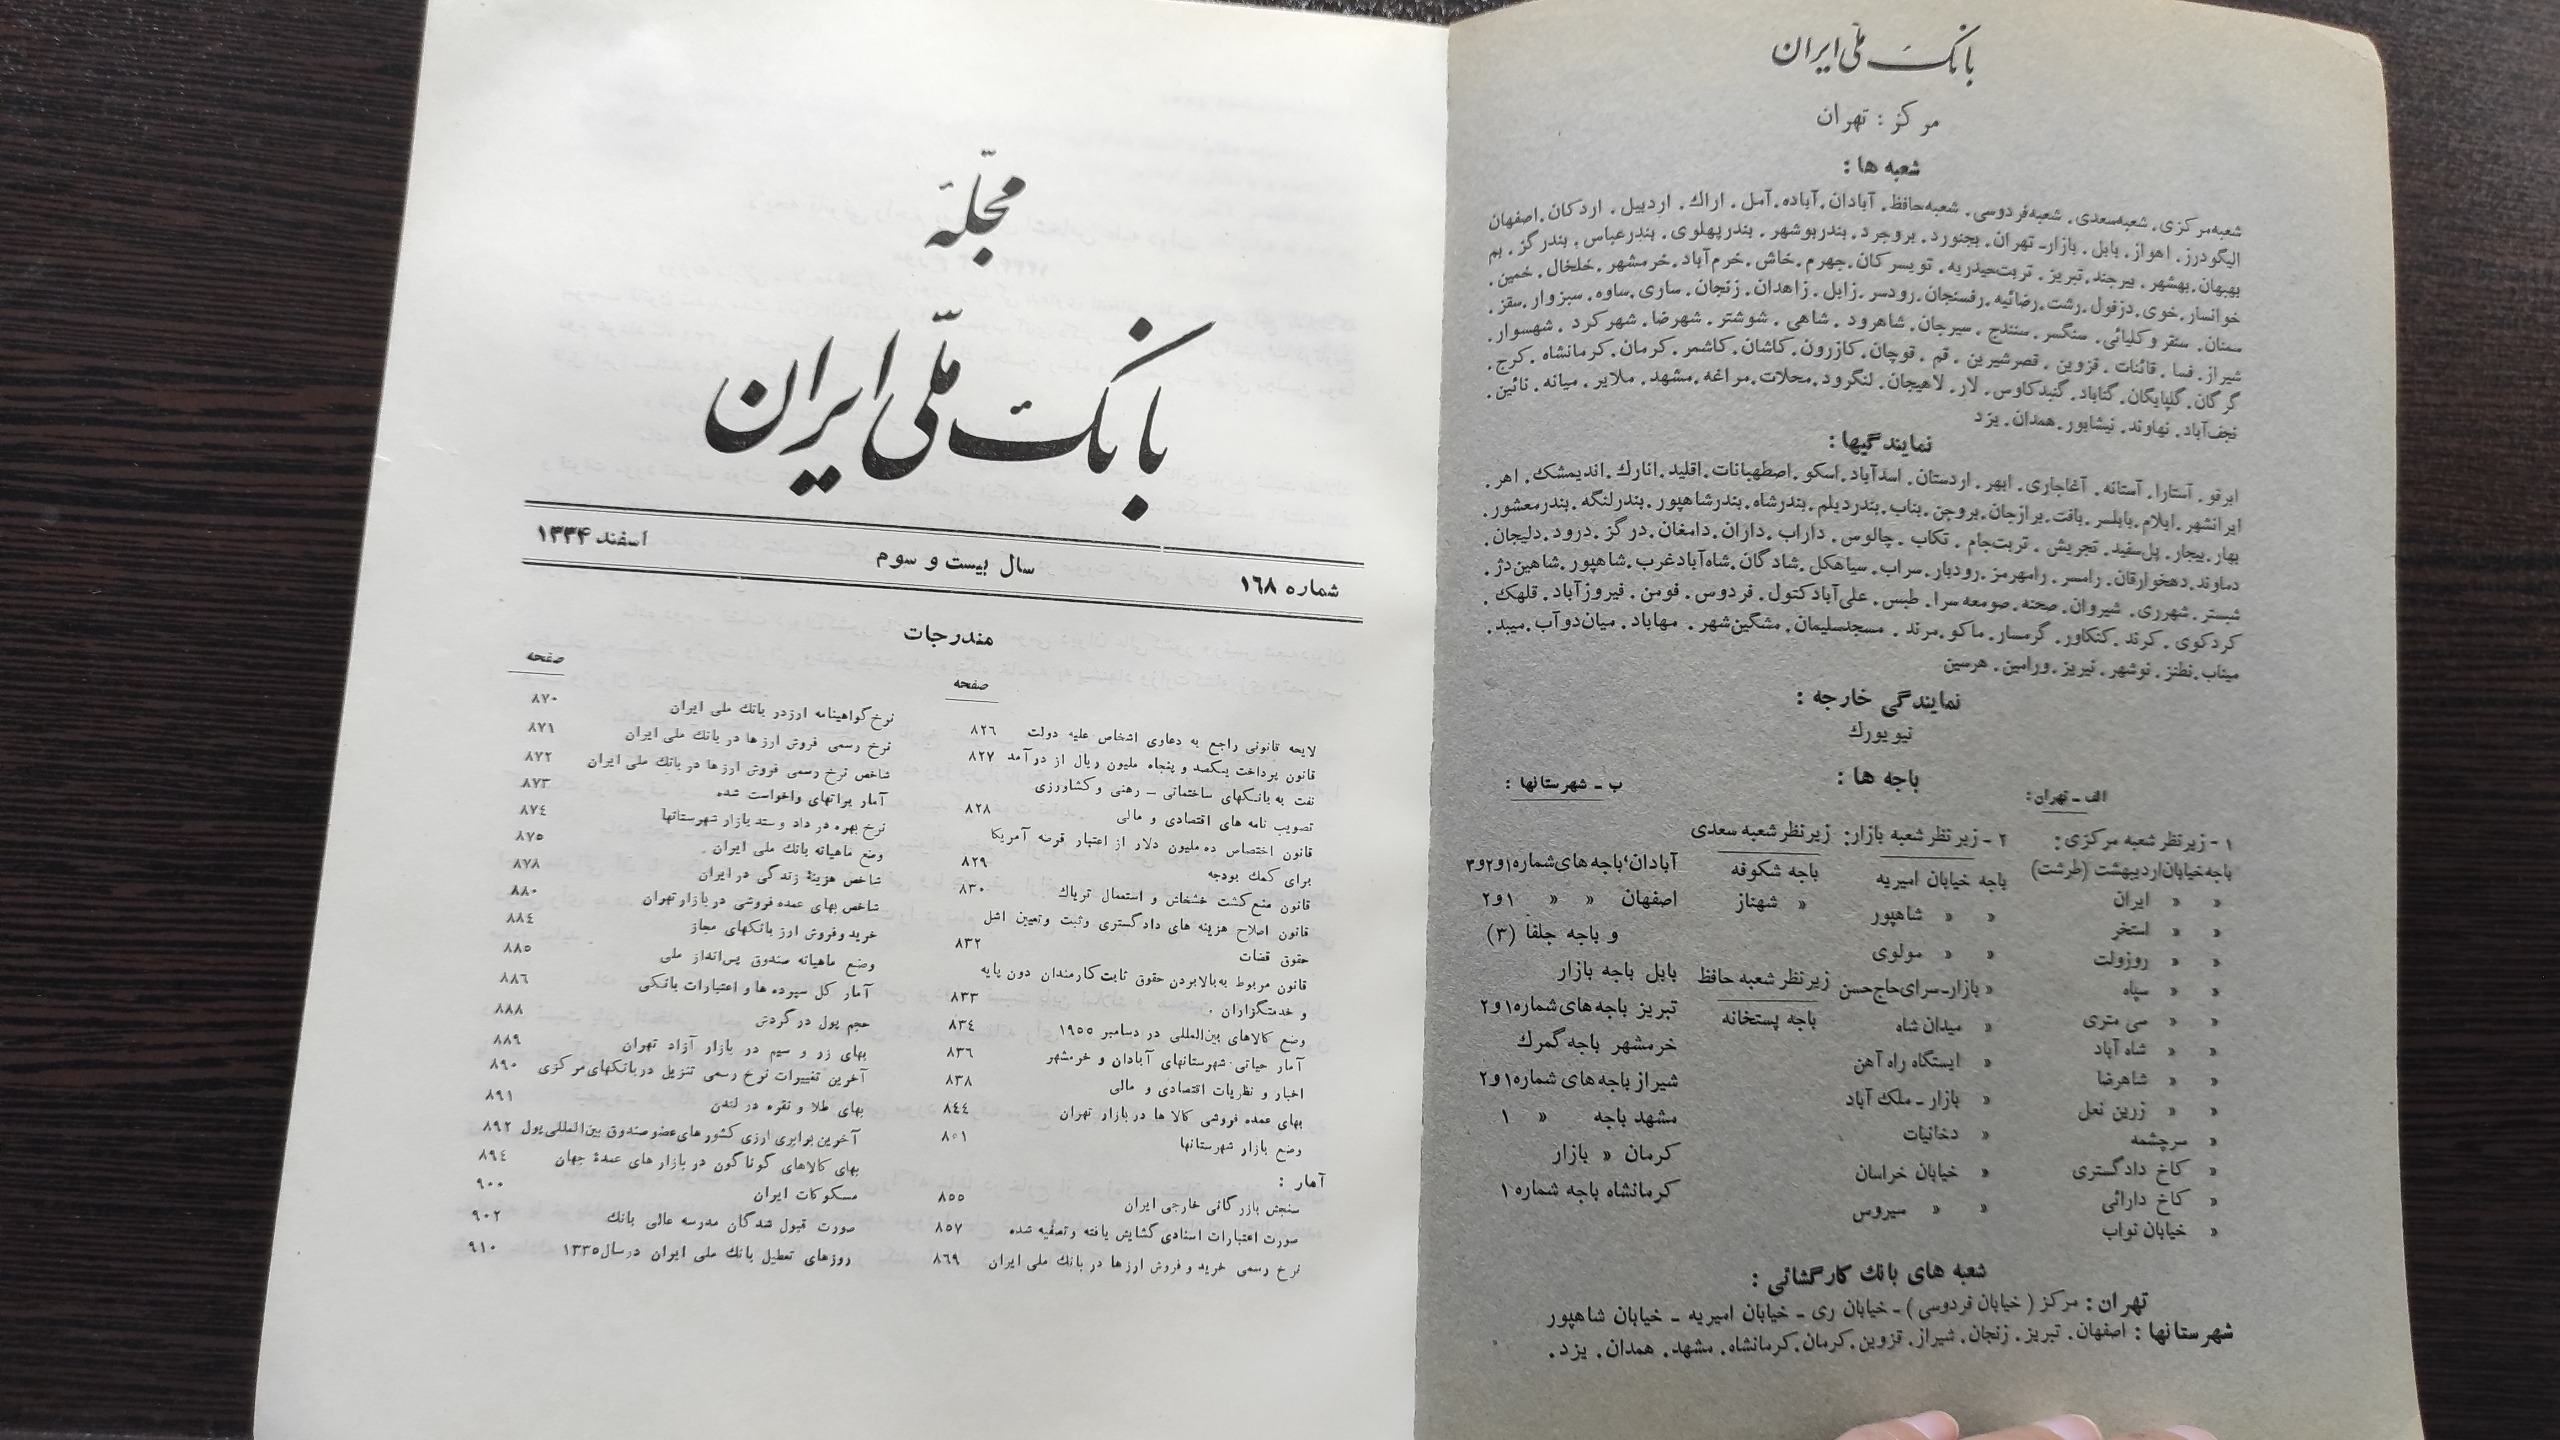 بانک ملی ایران
مرکز : تهران
شعبه ها :
شعبه مرکزی . شعبه سعدی . شعبه فردوسی . شعبه حافظ . آبادان . آباده . آمل . اراك . اردبیل . اردکان . اصفهان
الیگودرز . اهواز . بابل . بازار- تهران . بجنورد . بروجرد . بندر بوشهر . بندر پهلوی . بندر عباس . بندر گز . بم
بهبهان . بهشهر . بیرجند . تبریز . تربت حیدریه . تویسرکان . جهرم . خاش . خرم آباد . خرمشهر . خلخال . خمین .
خوانسار . خوی . دزفول . رشت . رضائیه . رفسنجان . رودسر . زابل . زاهدان . زنجان . ساری . ساوه . سبزوار . سقز .
سمنان . سنقر و کلیائی . سنگسر . سنندج . سیرجان . شاهرود . شاهی . شوشتر . شهرضا . شهر کرد . شهسوار .
شیراز . فسا . قائنات . قزوین . قصر شیرین . قم . قوچان . کازرون . کاشان . کاشمر . کرمان . کرمانشاه . کرج .
گرگان . گلپایگان . گناباد . گنبد کاوس . لار . لاهیجان . لنگرود . محلات . مراغه . مشهد . ملایر . میانه . نائین .
نجف آباد . نهاوند . نیشابور . همدان . یزد
نمایندگیها :
ابرقو . آستارا . آستانه . آغاجاری . ابهر . اردستان . اسدآباد . اسکو . اصطهبانات . اقلید . انارك . اندیمشک . اهر .
ایرانشهر . ایلام . بابلسر . بافت . برازجان . بروجن . بناب . بندر دیلم . بندر شاه . بندر شاهپور . بندر لنگه . بندر معشور .
بهار . بیجار . پل سفید . تجریش . تربت جام . تکاب . چالوس . داراب . داران . دامغان . درگز . درود . دلیجان .
دماوند . دهخوارقان . رامسر . رامهرمز . رودبار . سراب . سیاهکل . شادگان . شاه آباد غرب . شاهپور . شاهین دژ .
شبستر . شهرری . شیروان . صحنه . صومعه سرا . طبس . علی آباد کتول . فردوس . فومن . فیروزآباد . قلهک .
کردکوی . کرند . کنکاور . گرمسار . ماکو . مرند . مسجد سلیمان . مشگین شهر . مهاباد . میان دوآب . میبد .
میناب . نطنز . نوشهر . نیریز . ورامین . هرسین
نمایندگی خارجه :
نیویورك
باجه ها :
الف - تهران :
ب - شهرستانها :
۱ - زیر نظر شعبه مرکزی :
باجه خیابان اردیبهشت (طرشت)
« « ایران
« « استخر
« « روزولت
« « سپاه
« « سی متری
« « شاه آباد
« « شاهرضا
« « زرین نعل
« سرچشمه
« کاخ دادگستری
« کاخ دارائی
« خیابان نواب
۲ - زیر نظر شعبه بازار :
باجه خیابان امیریه
« « شاهپور
« « مولوی
« بازار- سرای حاج حسن
« میدان شاه
« ایستگاه راه آهن
« بازار - ملک آباد
« دخانیات
« خیابان خراسان
« « سیروس
زیر نظر شعبه سعدی
باجه شکوفه
« شهناز
زیر نظر شعبه حافظ
باجه پستخانه
آبادان ؛ باجه های شماره ۱و۲و۳
اصفهان « « ۱و۲
و باجه جلفا (۳)
بابل باجه بازار
تبریز باجه های شماره ۱و۲
خرمشهر باجه گمرك
شیراز باجه های شماره ۱و۲
مشهد باجه « ۱
کرمان « بازار
کرمانشاه باجه شماره ۱
شعبه های بانك کارگشائی :
تهران : مرکز ( خیابان فردوسی ) - خیابان ری - خیابان امیریه - خیابان شاهپور
شهرستانها : اصفهان . تبریز . زنجان . شیراز . قزوین . کرمان . کرمانشاه . مشهد . همدان . یزد .
مجلّهٔ
بانک ملّی ایران
شماره ۱۶۸
سال بیست و سوم
اسفند ۱۳۳۴
مندرجات
صفحه
لایحه قانونی راجع به دعاوی اشخاص علیه دولت ۸۲۶
قانون پرداخت یکصد و پنجاه ملیون ریال از درآمد ۸۲۷
نفت به بانکهای ساختمانی - رهنی و کشاورزی
تصویب نامه های اقتصادی و مالی ۸۲۸
قانون اختصاص ده ملیون دلار از اعتبار قرضه آمریکا
برای کمك بودجه ۸۲۹
قانون منع کشت خشخاش و استعمال تریاك ۸۳۰
قانون اصلاح هزینه های دادگستری وثبت وتعیین اشل
حقوق قضات ۸۳۲
قانون مربوط به بالا بردن حقوق ثابت کارمندان دون پایه
و خدمتگزاران . ۸۳۳
وضع کالاهای بین‌المللی در دسامبر ۱۹۵۵ ۸۳۴
آمار حیاتی شهرستانهای آبادان و خرمشهر ۸۳۶
اخبار و نظریات اقتصادی و مالی ۸۳۸
بهای عمده فروشی کالا ها در بازار تهران ۸۴۴
وضع بازار شهرستانها ۸۵۱
آمار :
سنجش بازرگانی خارجی ایران ۸۵۵
صورت اعتبارات اسنادی گشایش یافته وتصفیه شده ۸۵۷
نرخ رسمی خرید و فروش ارزها در بانك ملی ایران ۸۶۹
صفحه
نرخ گواهینامه ارز در بانك ملی ایران ۸۷۰
نرخ رسمی فروش ارزها در بانك ملی ایران ۸۷۱
شاخص نرخ رسمی فروش ارزها در بانك ملی ایران ۸۷۲
آمار براتهای واخواست شده ۸۷۳
نرخ بهره در داد و ستد بازار شهرستانها ۸۷۴
وضع ماهیانه بانك ملی ایران . ۸۷۵
شاخص هزینهٔ زندگی در ایران ۸۷۸
شاخص بهای عمده فروشی در بازار تهران ۸۸۰
خرید وفروش ارز بانکهای مجاز ۸۸۴
وضع ماهیانه صندوق پس‌انداز ملی ۸۸۵
آمار کل سپرده ها و اعتبارات بانکی ۸۸۶
حجم پول در گردش ۸۸۸
بهای زر و سیم در بازار آزاد تهران ۸۸۹
آخرین تغییرات نرخ رسمی تنزیل در بانکهای مرکزی ۸۹۰
بهای طلا و نقره در لندن ۸۹۱
آخرین برابری ارزی کشورهای عضو صندوق بین‌المللی پول ۸۹۲
بهای کالاهای گوناگون در بازارهای عمدهٔ جهان ۸۹۴
مسکوکات ایران ۹۰۰
صورت قبول شدگان مدرسه عالی بانك ۹۰۲
روزهای تعطیل بانك ملی ایران در سال ۱۳۳۵ ۹۱۰